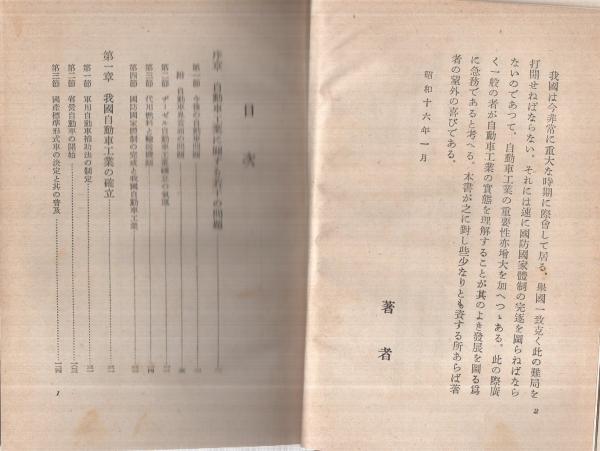 我國は今非常に重大な時期に際會して居る。擧國一致克く此の難局を
打開せねばならない。それには速に國防國家體制の完逐を圖らねばなら
ないのであつて、自動車工業の重要性亦增大を加へつゝある。此の際廣
く一般の者が自動車工業の實態を理解することが其のよき發展を圖る爲
に急務であると考へる。本書が之に對し些少なりとも資する所あらば著
者の望外の喜びである。
昭和十六年一月
著者
2
目次
序章 自動車工業に關する若干の問題
第一節
附
第二節 ヂーゼル自動車工業
第三節 代用燃料と
第四節 國防國家體制の完成と我國自動車工業
第一章 我國自動車工業の確立
第一節 軍用自動車補助法の制定
第二節 省營自動車の開始
第三節 國產標準形式車の決定と其の普及
1